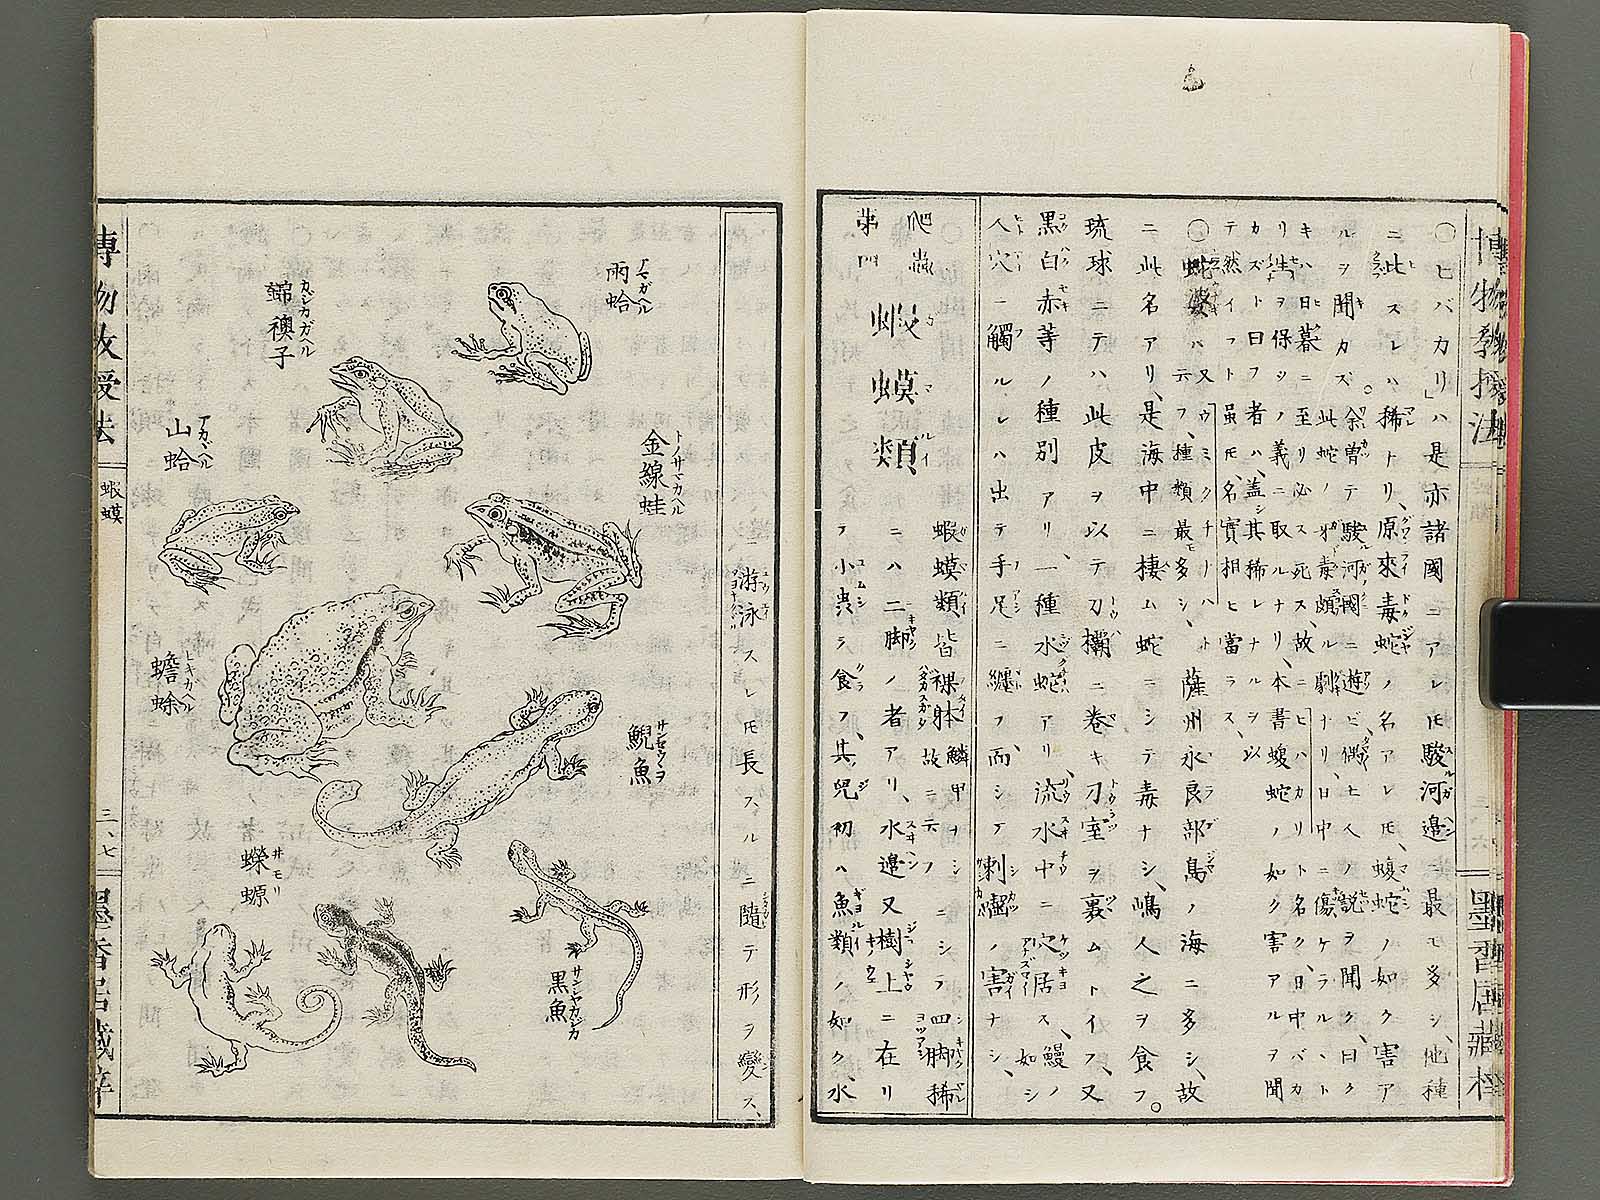 博物教授法
〇ヒバカリ」ハ是亦諸國ニアレㇳモ駿河邉ニ最モ多シ、他種
ニ此スレハ稀ナリ、原來毒蛇ノ名アレㇳモ、蝮蛇ノ如ク害ア
ルヲ聞カズ。余曽テ駿河國ニ遊ビ、偶ヒ人ノ説ヲ聞ク、曰ク
此蛇ノ牙毒頗ル劇ナリ、口中ニ傷ケラルヽト
キハ日暮ニ至リ必ス死ス、故ニヒハカリト名ク、日中バカ
リ生ヲ保シノ義ニ取ルナリ、本書蝮蛇ノ如ク害アルヲ聞
カズト曰フ者ハ、盖シ其稀レナルヲ以
テ然イフト虽モ、名實相ヒ當ラス、
〇蛇婆ハ又ウミクチナハト
云フ、種類最モ多シ、薩州永良部島ノ海ニ多シ、故
ニ此名アリ、是海中ニ棲ム蛇ニシテ毒ナシ、嶋人之ヲ食フ。
琉球ニテハ此皮ヲ以テ刀欛ニ卷キ刀室ヲ裹ムトイフ、又
黒白赤等ノ種別アリ、一種水蛇アリ、流水中ニ穴居ス、鰻ノ如シ
人穴ニ觸ルレハ出テ手足ニ纏フ、而シテ刺囓ノ害ナシ、
爬虫
第一門
蝦蟇類
蝦蟇類皆裸躰鱗甲ナシ故ニ云フニシラ四肢稀
ニハ二脚ノ者アリ、水邉又樹上ニ在リ
テ小蟲ラ食フ、其兒初ハ魚類ノ如ク水
ニ游泳スレㇳモ長スルニ隨テ形ヲ變ス、
アマガヘル
雨蛤
カジカガヘル
錦襖子
トノサマカヘル
金線蛙
アカガヘル
山蛤
ヒキガヘル
蟾蜍
サンセウウヲ
鯢魚
井モリ
蠑螈
サンセウカジカ
黒魚
博物教授法
蝦蟇
三、七
墨香居藏梓
墨香居藏梓